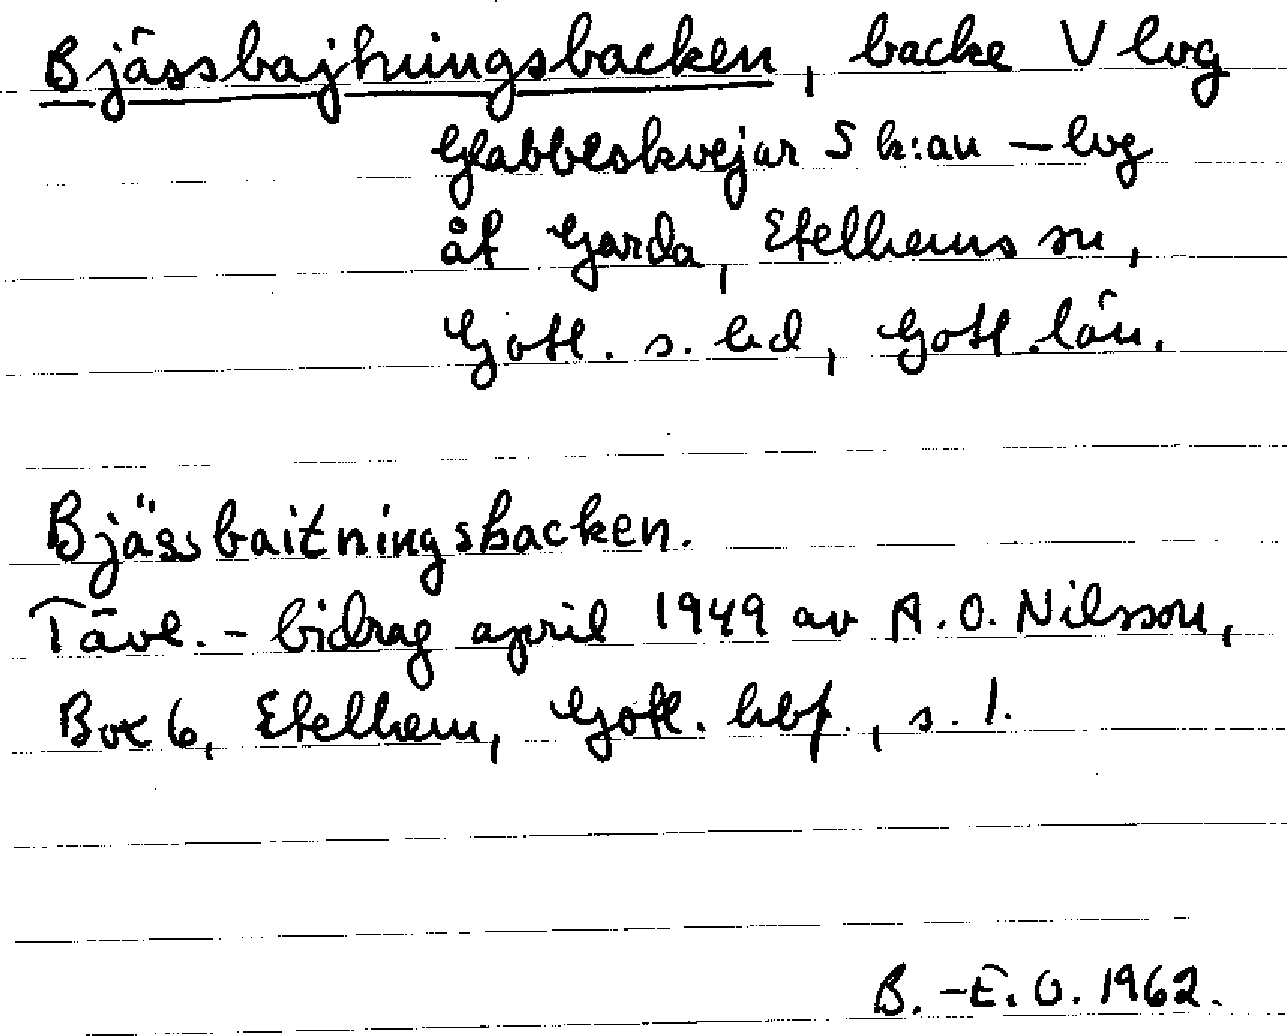 Bjässbajtningsbacken, backe V lvg
Glabbeskvejar S k:an – lvg
åt Garda, Etelhems sn,
Gotl. s. hd, Gotl. län.
Bjässbaitningsbacken.
Tävl. - bidrag april 1949 av A. O. Nilsson,
Box 6, Etelhem, Gotl. hbf., s. 1.
B. -E. O. 1962.